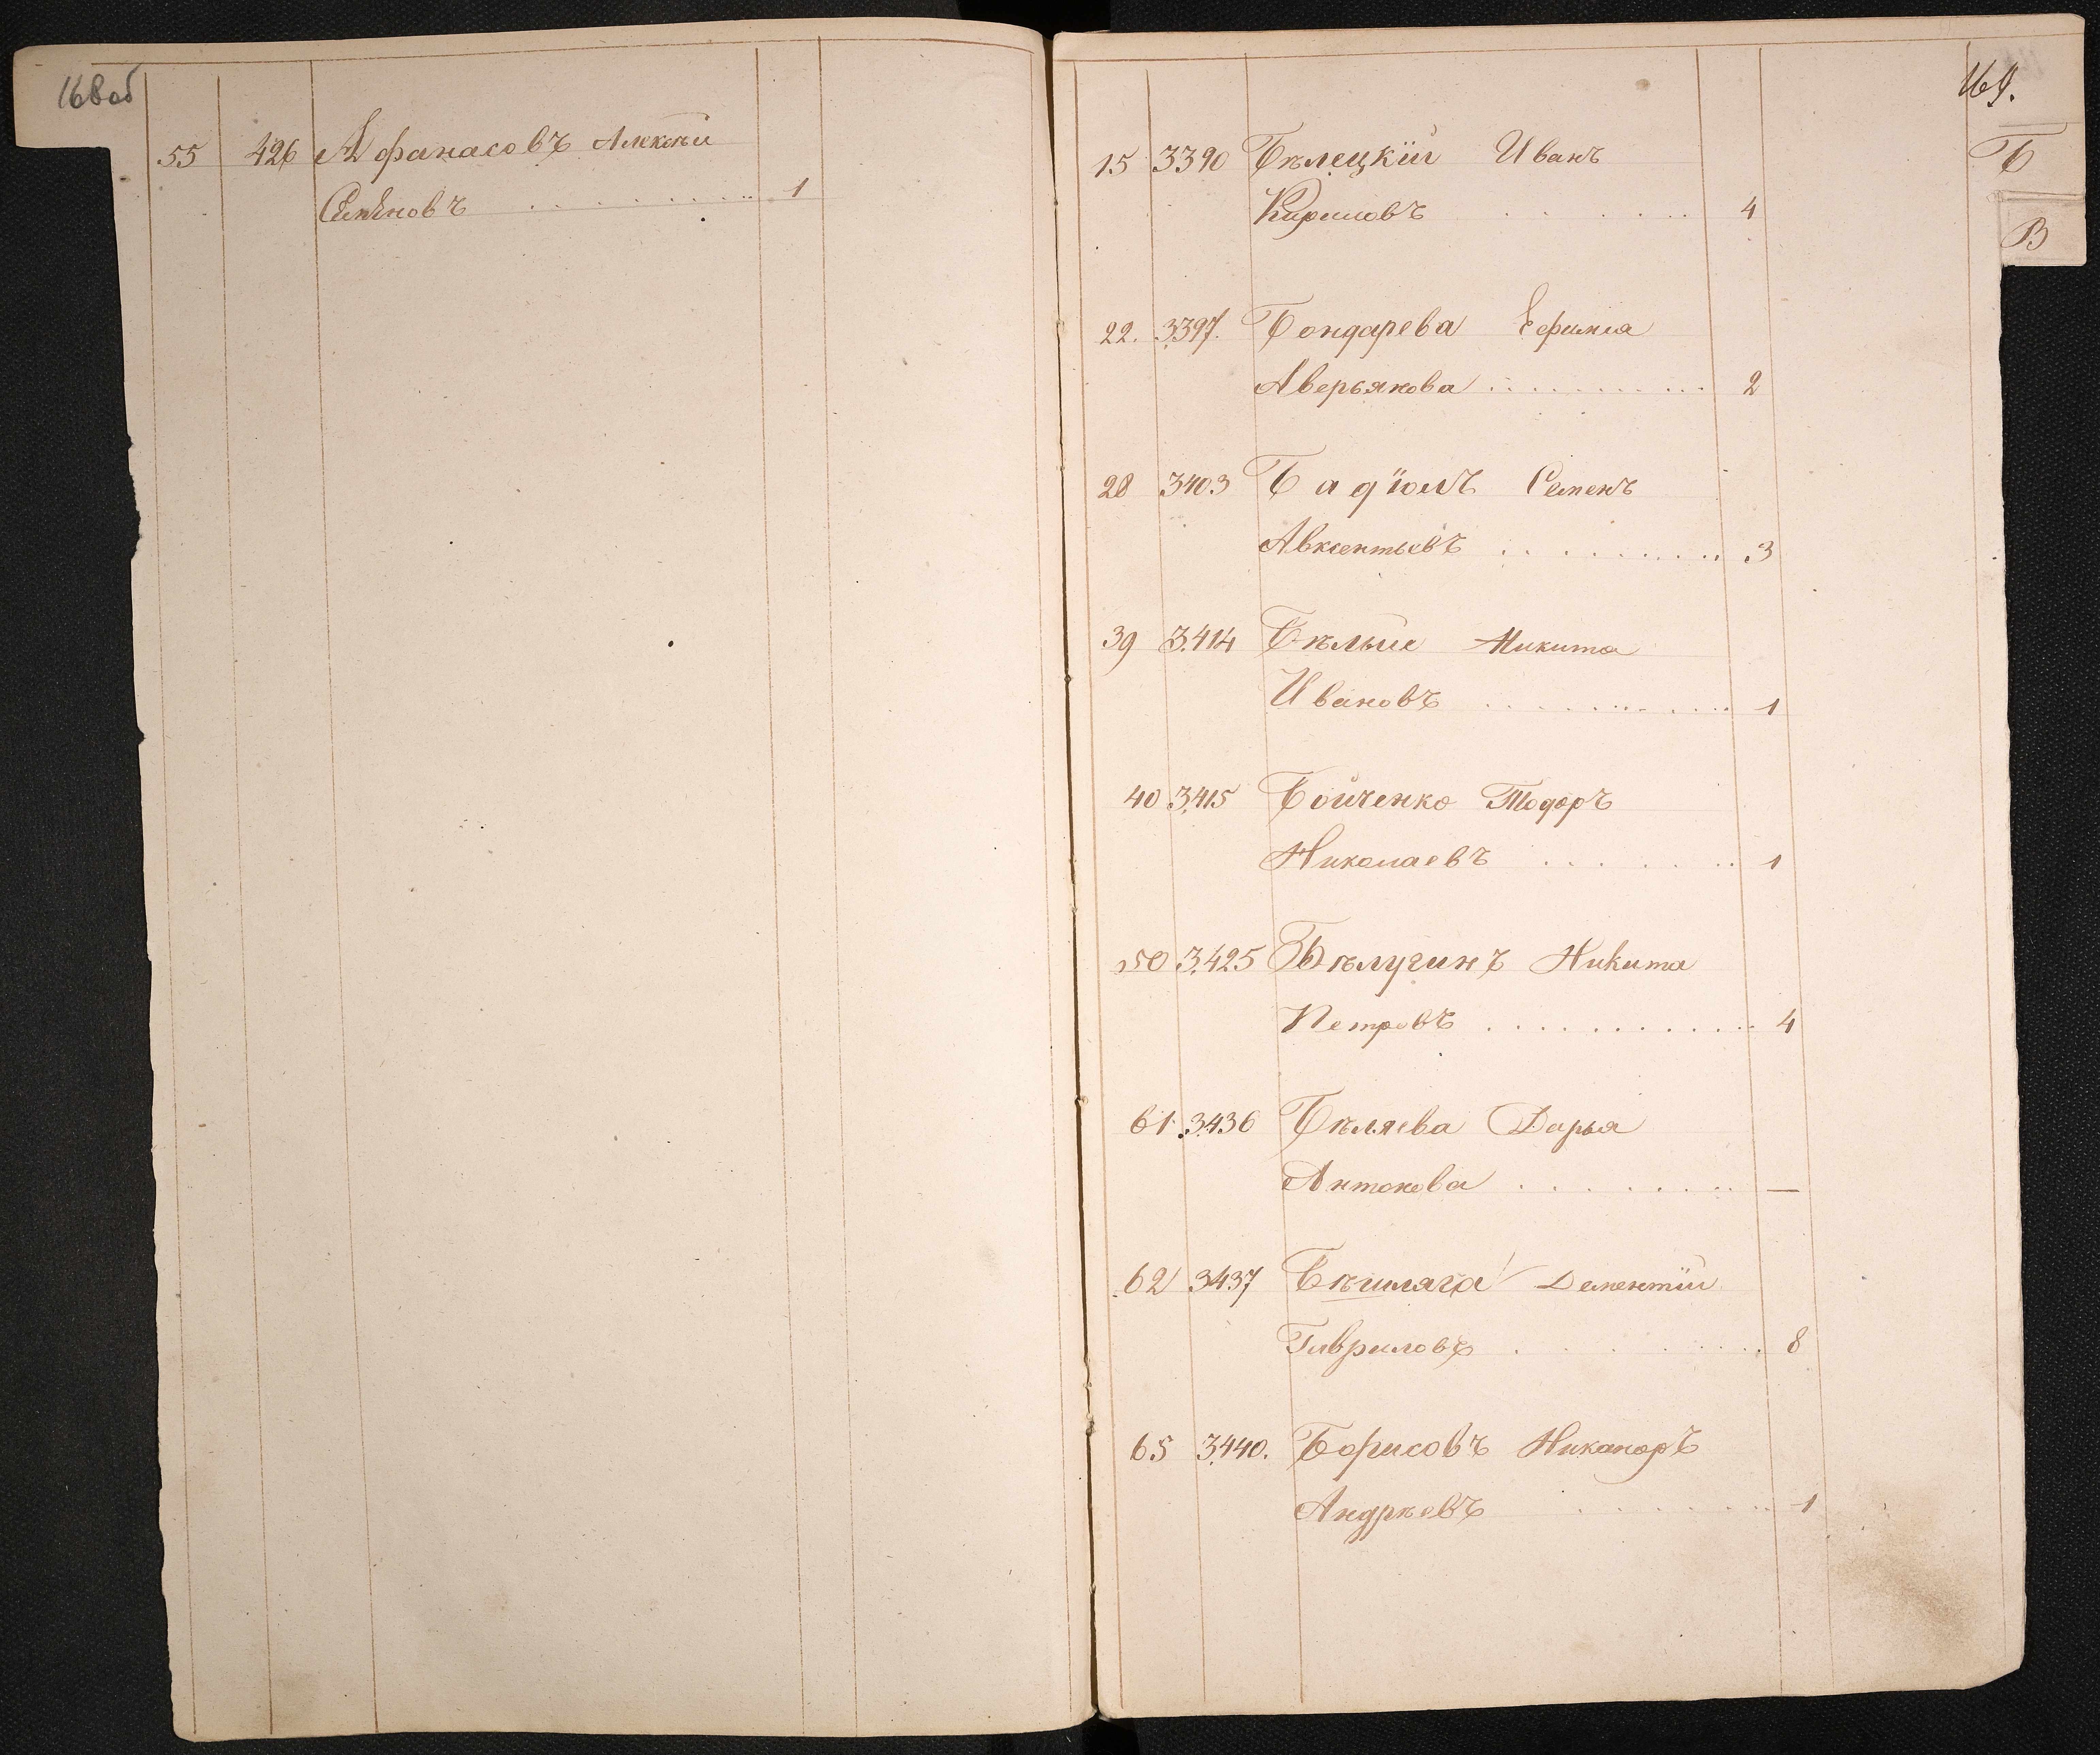 168 об
55 426 Афанасовъ Алексѣй
Семеновъ 1
169.
Б
В
15 3390 Бѣлецкій Иванъ
Кириловъ 4
22. 3397. Бондарева Ефимія
Аверьянова 2
28 3403 Бадюлъ Семенъ
Авксентьевъ 3
39 3414 Бѣлые Никита
Ивановъ 1
40 3415 Бойченко Тодоръ
Николаевъ 1
50 3425 Бѣлугинъ Никита
Петровъ 4
61. 3436 Бѣляева Дарья
Антонова —
62 3437 Дементій
Гавриловъ 8
65 3440. Борисовъ Никаноръ
Андрѣевъ 1